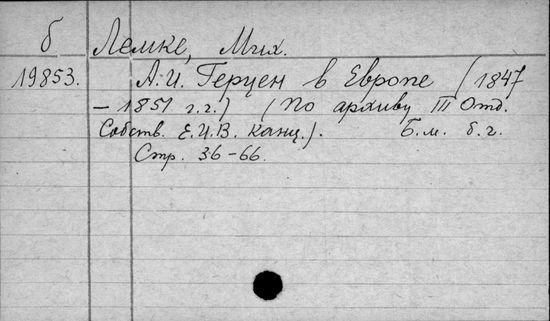 б Лемке, Мих.
19853. А.И. Герцен в Европе (1847
– 1851 г.г.) (По архиву III Отд.
Собств. Е.И.В. Канц.). Б.м. б.г.
Стр. 36–66.